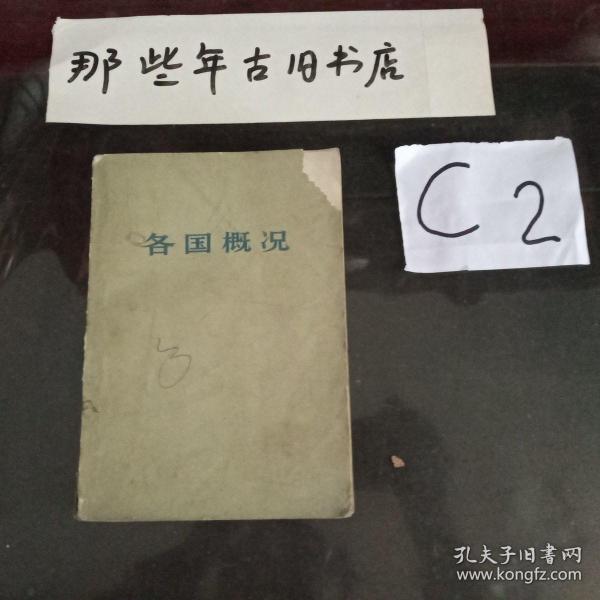 那些年古旧书店
C2
各国概况
孔夫子旧書网
www.kongfz.com